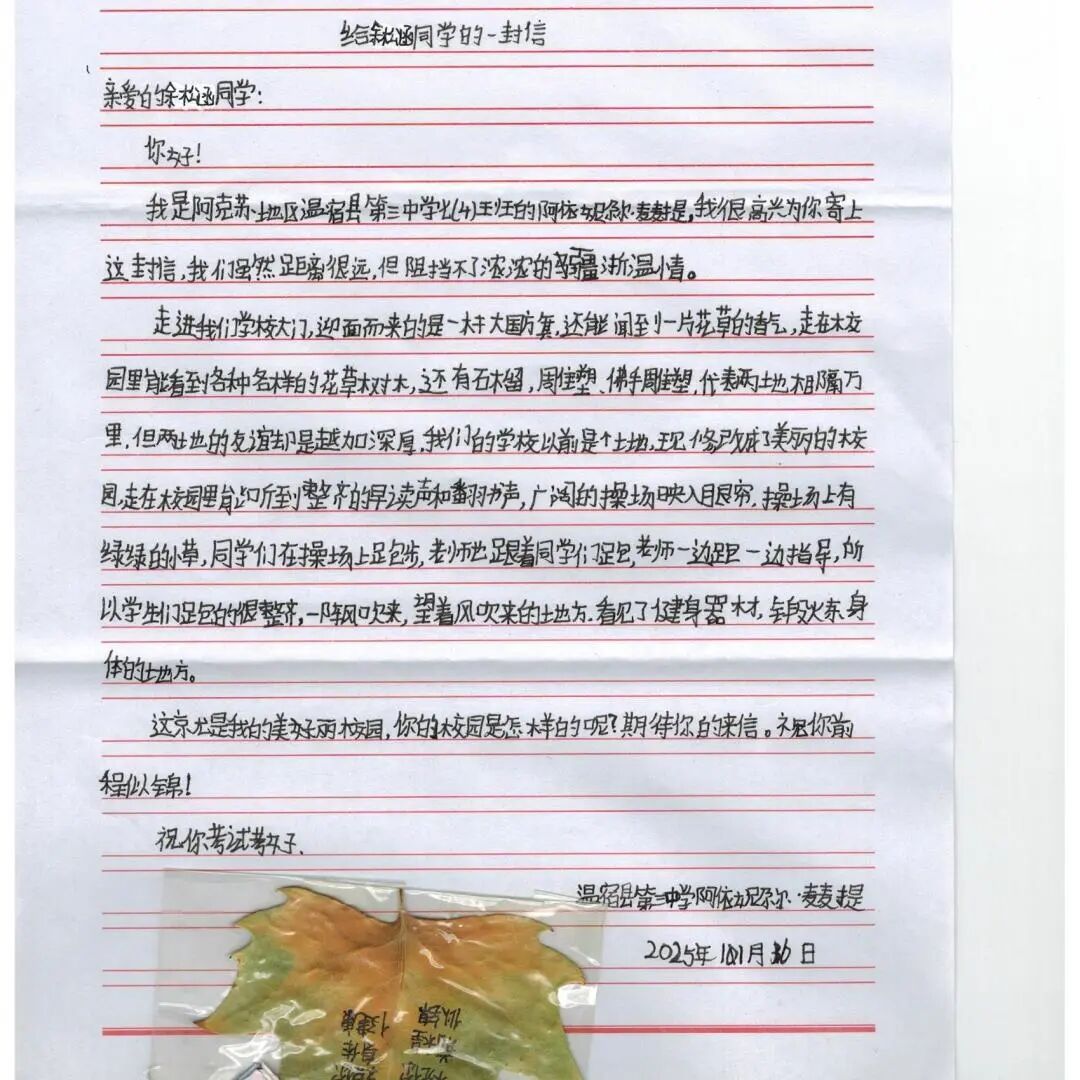 给徐松涵同学的一封信
亲爱的徐松涵同学：
你好！
我是阿克苏地区温宿县第三中学七(4)班的阿依妮尕尔·麦麦提，我很高兴为你寄上
这封信，我们虽然距离很远，但阻挡不了浓浓的疆浙温情。
走进我们学校大门，迎面而来的是一栋大国方寞，还能闻到一片花草的香气，走在校
园里能看到各种各样的花草树木，还有石榴，周住塑、佛手周住塑，代表两地相隔万
里，但两地的友谊却是越加深厚，我们的学校以前是个土地，现修改成了美丽的校
园，走在校园里能听到整齐的早读声和翻书声，广阔的操场映入眼帘，操场上有
绿绿的小草，同学们在操场上跑步，老师也跟着同学们跑，老师一边跑一边指导，所
以学生们跑的很整齐，一阵风吹来，望着风吹来的地方，看见了健身器材，锻炼身
体的地方。
这就是我的美好丽校园，你的校园是怎样的呢？期待你的来信。祝你前
程似锦！
祝你考试考好．
温宿县第三中学阿依妮尕尔·麦麦提
2025年 月 日
祝你
身体
健康
祝你
前程
似锦